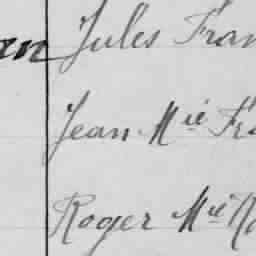 Jules Fran
Jean Mie Fra
Roger Mie